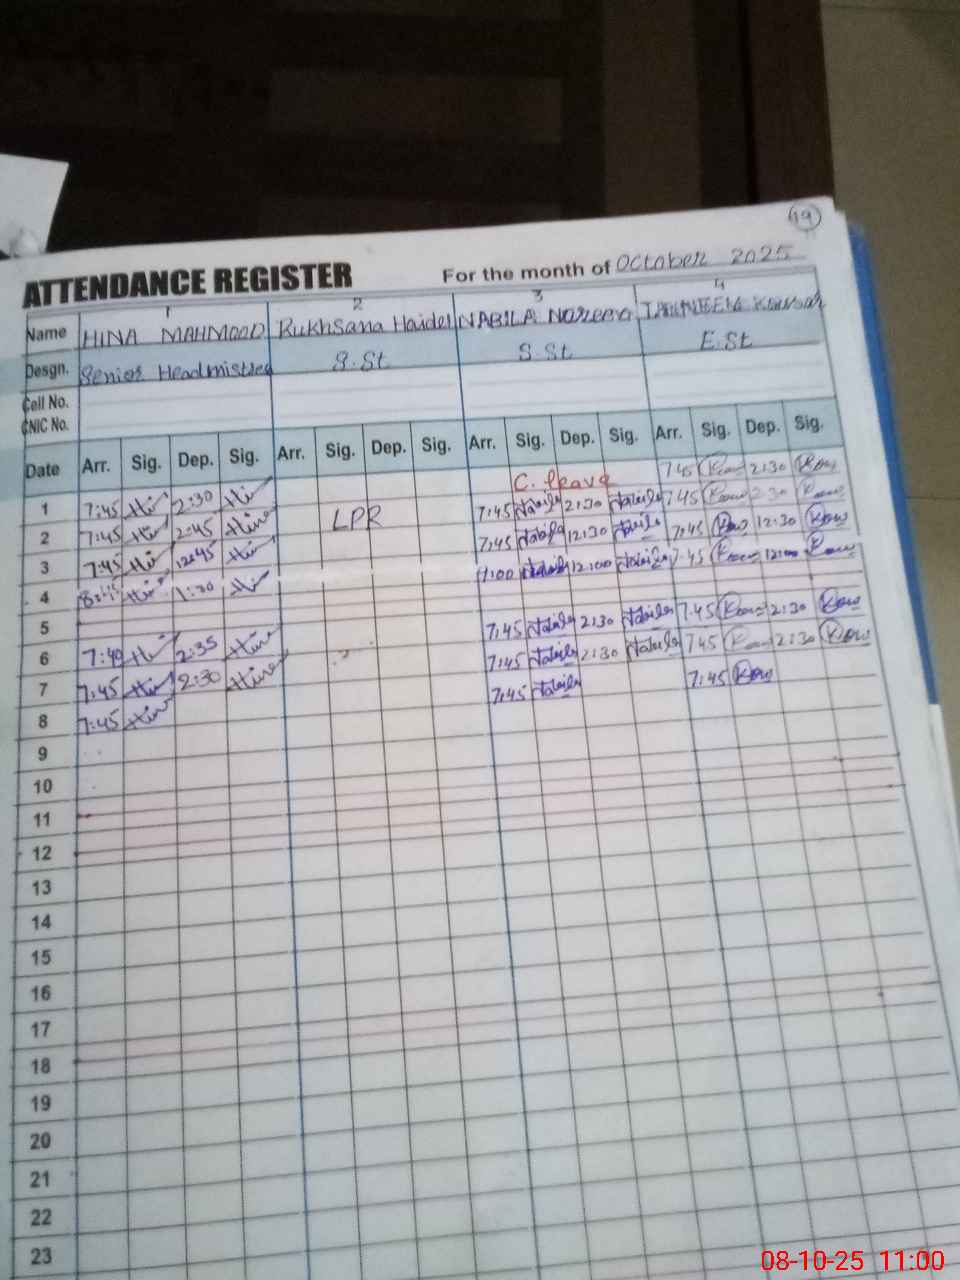 19
ATTENDANCE REGISTER For the month of October 2025
1 2 3 4
Name HINA MAHMOOD Rukhsana Haider NABILA Noreen Kousar
Desgn. Senior Headmistress S.St S.St E.St
Cell No.
CNIC No.
Date Arr. Sig. Dep. Sig. Arr. Sig. Dep. Sig. Arr. Sig. Dep. Sig. Arr. Sig. Dep. Sig.
1 7:45 Hi 2:30 Hi C. leave 7:45 Kou 2:30 Kou
2 7:45 Hi 2:45 Hina LPR 7:45 Nabila 2:30 Nabila 7:45 Kou 2:30 Kou
3 7:45 Hi 12:45 Hi 7:45 Nabila 12:30 Nabila 7:45 Kou 12:30 Kou
4 Hi 1:30 Hi Nabila 12:00 Nabila 7:45 Kou 12:00 Kou
5
6 7:40 Hi 2:35 Hina 7:45 Nabila 2:30 Nabila 7:45 Kou 2:30 Kou
7 7:45 Hi 2:30 Hina 7:45 Nabila 2:30 Nabila 7:45 Kou 2:30 Kou
8 7:45 Hina 7:45 Nabila 7:45 Kou
9
10
11
12
13
14
15
16
17
18
19
20
21
22
23
08-10-25 11:00